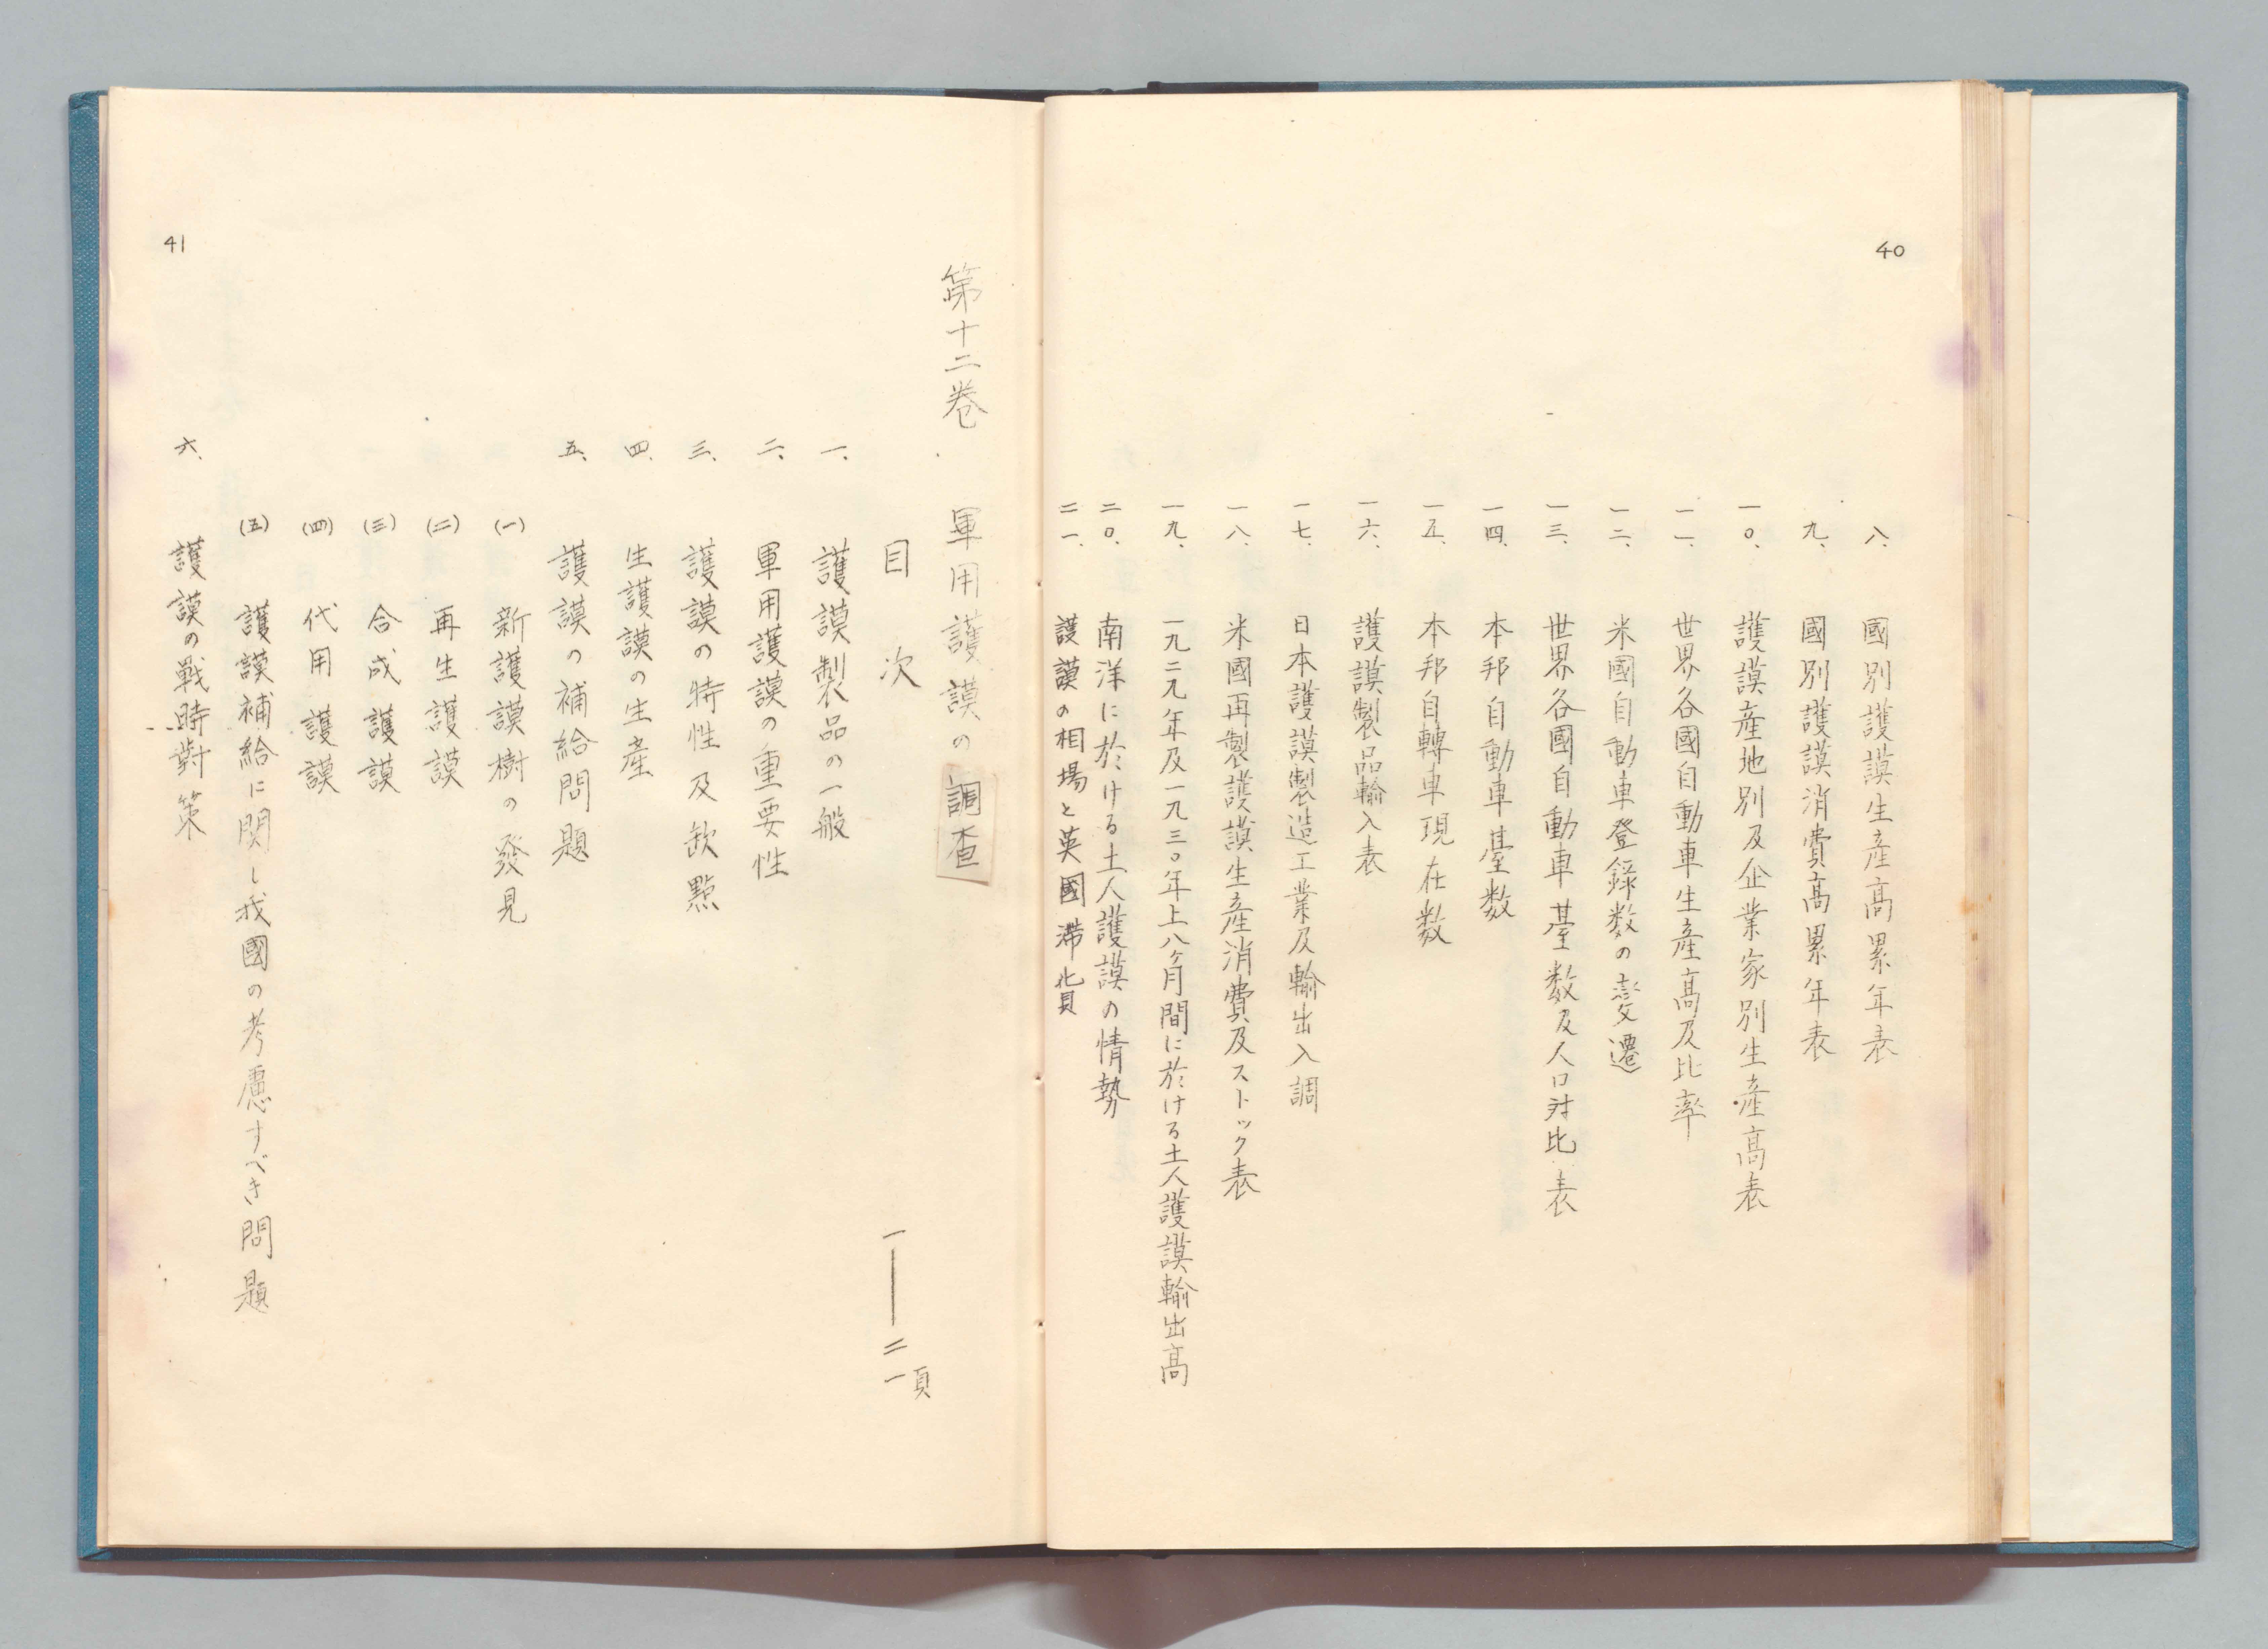 40
八、國別護謨生産高累年表
九、國別護謨消費高累年表
一〇、護謨産地別及企業家別生産高表
一一、世界各國自動車生産高及比率
一二、米國自動車登錄数の變遷
一三、世界各國自動車臺数及人口対比表
一四、本邦自動車臺数
一五、本邦自轉車現在数
一六、護謨製品輸入表
一七、日本護謨製造工業及輸出入調
一八、米國再製護謨生産消費及ストック表
一九、一九二九年及一九三〇年上八ヶ月間に於ける土人護謨輸出高
二〇、南洋に於ける土人護謨の情勢
二一、護謨の相場と英國滞貨
第十二卷 軍用護謨の調査
目次 一——二一頁
一、護謨製品の一般
二、軍用護謨の重要性
三、護謨の特性及缺點
四、生護謨の生産
五、護謨の補給問題
(一) 新護謨樹の發見
(二) 再生護謨
(三) 合成護謨
(四) 代用護謨
(五) 護謨補給に関し我國の考慮すべき問題
六、護謨の戰時對策
41